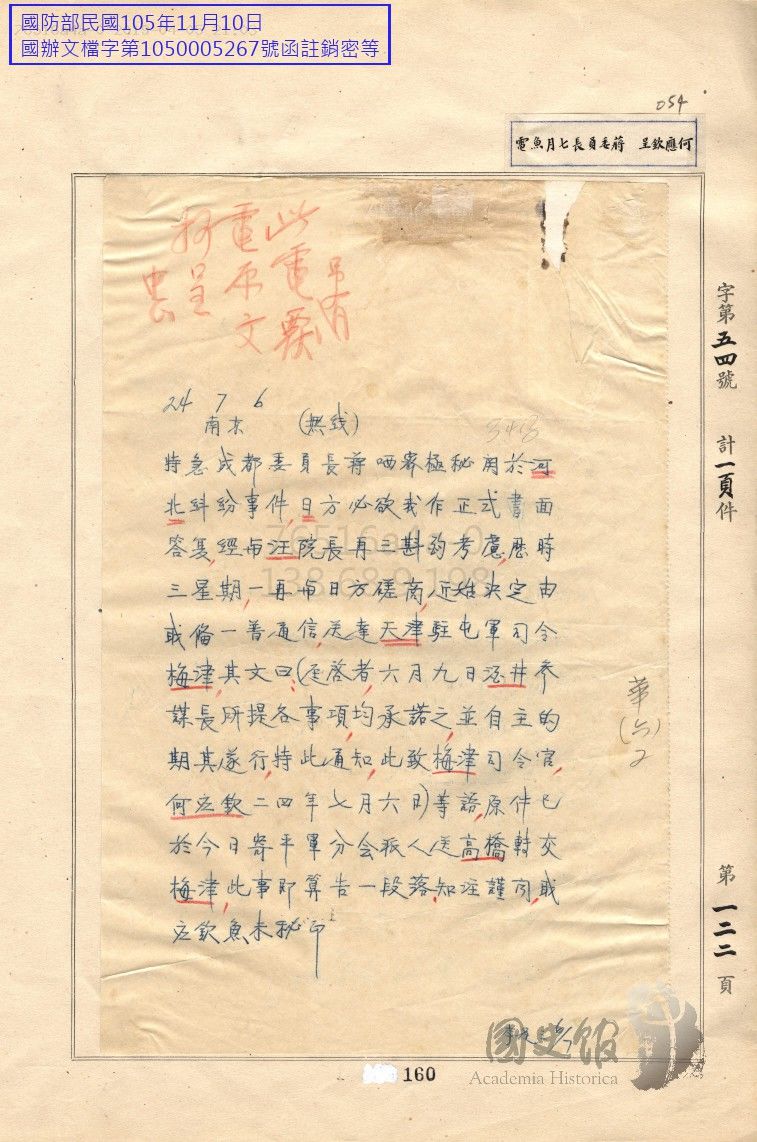 國防部民國105年11月10日
國辦文檔字第1050005267號函註銷密等
054
何應欽呈 蔣委員長七月魚電
此電要
電原文
抄呈
24 7 6
南京 (無线)
特急成都委員長蔣 密極秘関於河
北糾紛事件,日方必欲我作正式書面
答复,經与汪院長再三斟酌考慮,歷時
三星期,一再与日方磋商,近始決定由
職俻一普通信,送達天津駐屯軍司令
梅津,其文曰:(逕啓者,六月九日酒井参
謀長所提各事項,均承諾之,並自主的
期其遂行,特此通知,此致梅津司令官,
何应欽二四年七月六日)等語,原件已
於今日寄平軍分会派人送高橋轉交
梅津,此事即算告一段落,知注謹聞,職
应欽魚未秘印
字第五四號 計一頁件
第一二二頁
華(六)2
國史館
Academia Historica
160